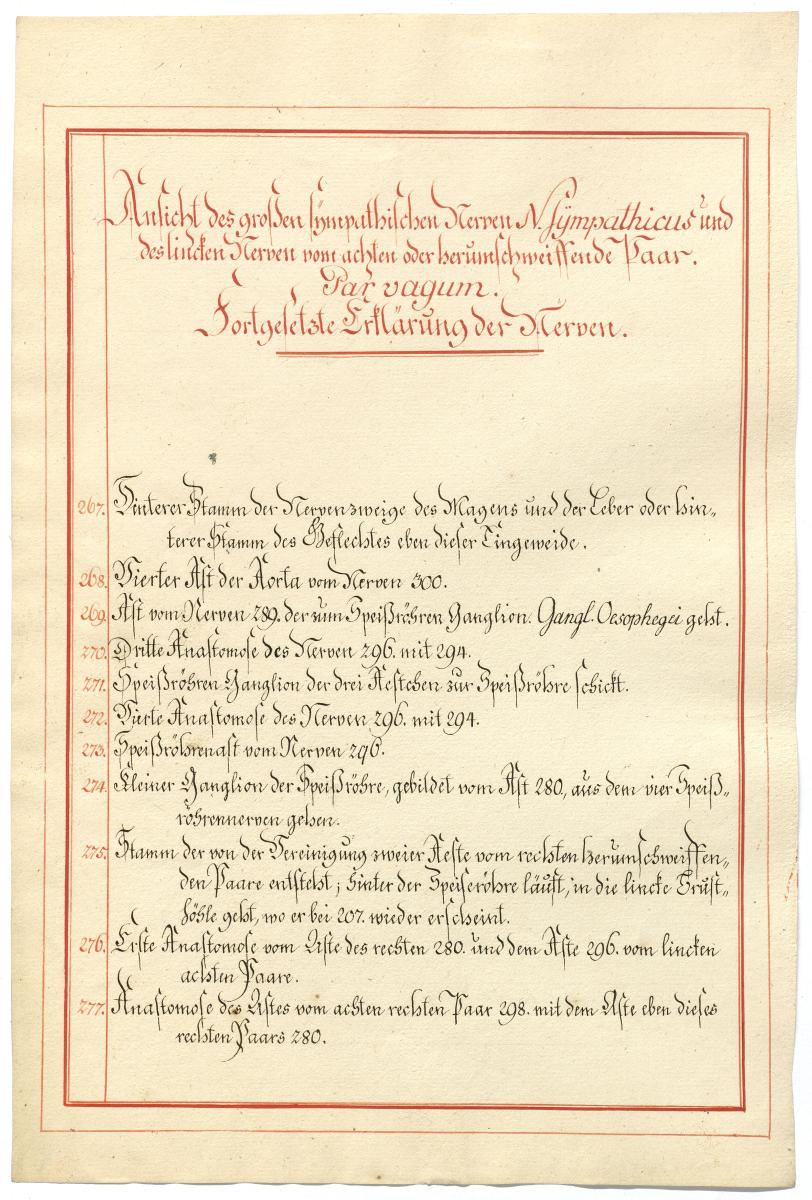 Ansicht des großen sympathischen Nerven N. Sÿmpathicus und
des lincken Nerven vom achten oder herumschweiffende Paar.
Par vagum.
Fortgesetzte Erklärung der Nerven.
267. Hinterer Stamm der Nervenzweige des Magens und der Leber oder hin„
terer Stamm des Geflechtes eben dieser Eingeweide.
268. Vierter Ast der Aorta vom Nerven 300.
269. Ast vom Nerven 289. der zum Speißröhren Ganglion. Gangl. Oesophegei geht.
270. Dritte Anastomose des Nerven 296. mit 294.
271. Speißröhren Ganglion der drei Aestchen zur Speißröhre schickt.
272. Vierte Anastomose des Nerven 296. mit 294.
273. Speißröhrenast vom Nerven 296.
274. Kleiner Ganglion der Speißröhre, gebildet vom Ast 280., aus dem vier Speiß„
röhrennerven gehen.
275. Stamm der von der Vereinigung zweier Aeste vom rechten herumschweiffen„
den Paare entsteht; hinter der Speiseröhre läuft, in die lincke Brust„
höhle geht, wo er bei 207. wieder erscheint.
276. Erste Anastomose vom Aste des rechten 280. und dem Aste 296. vom lincken
achten Paare.
277. Anastomose des Astes vom achten rechten Paar 298. mit dem Aste eben dieses
rechten Paars 280.